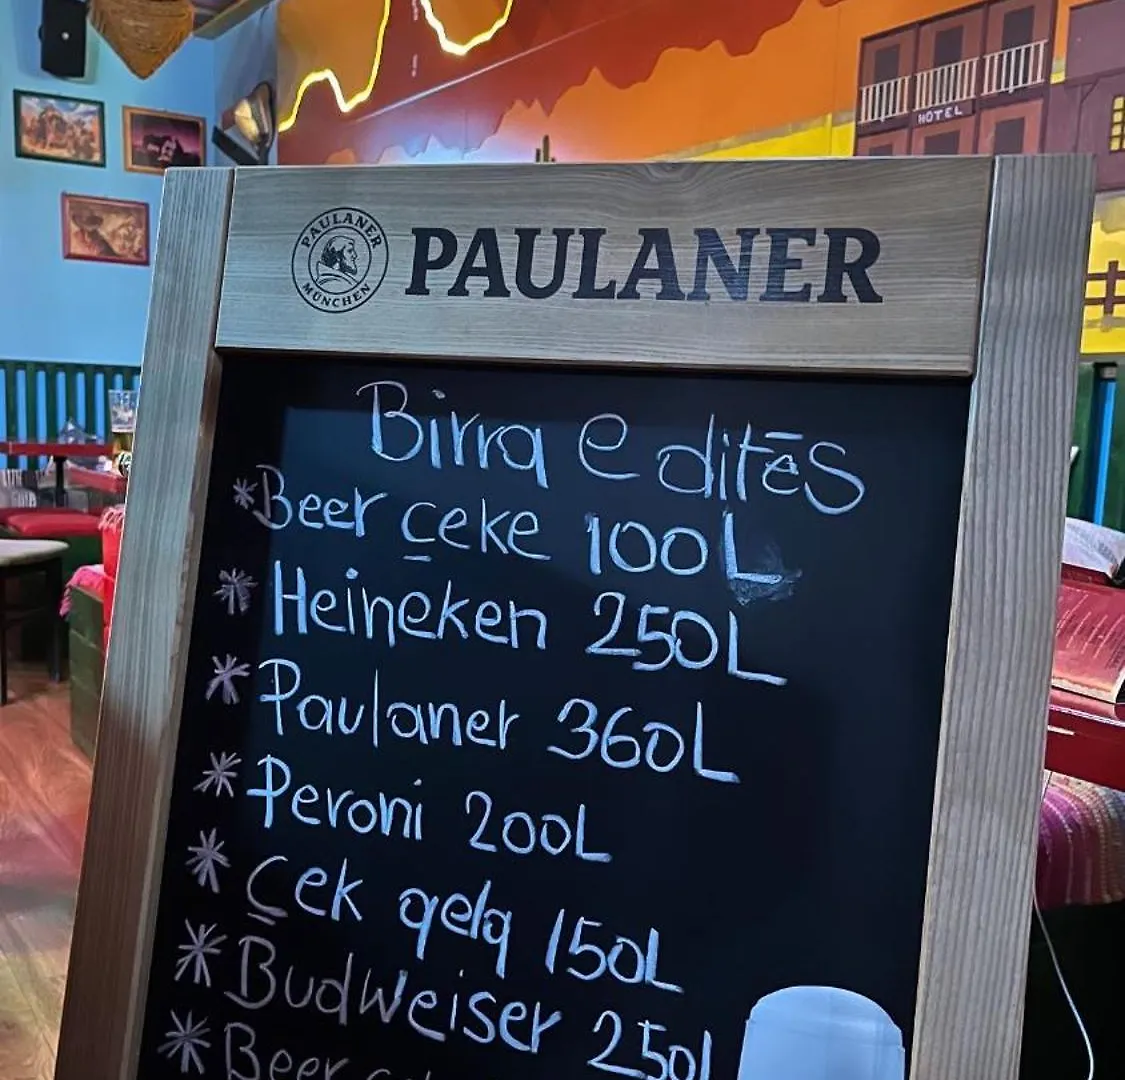 HOTEL
PAULANER
MÜNCHEN
PAULANER
Birra e ditēs
*Beer çeke 100L
* Heineken 250L
* Paulaner 360L
* Peroni 200L
* Çek qelq 150L
* Budweiser 250L
* Beer